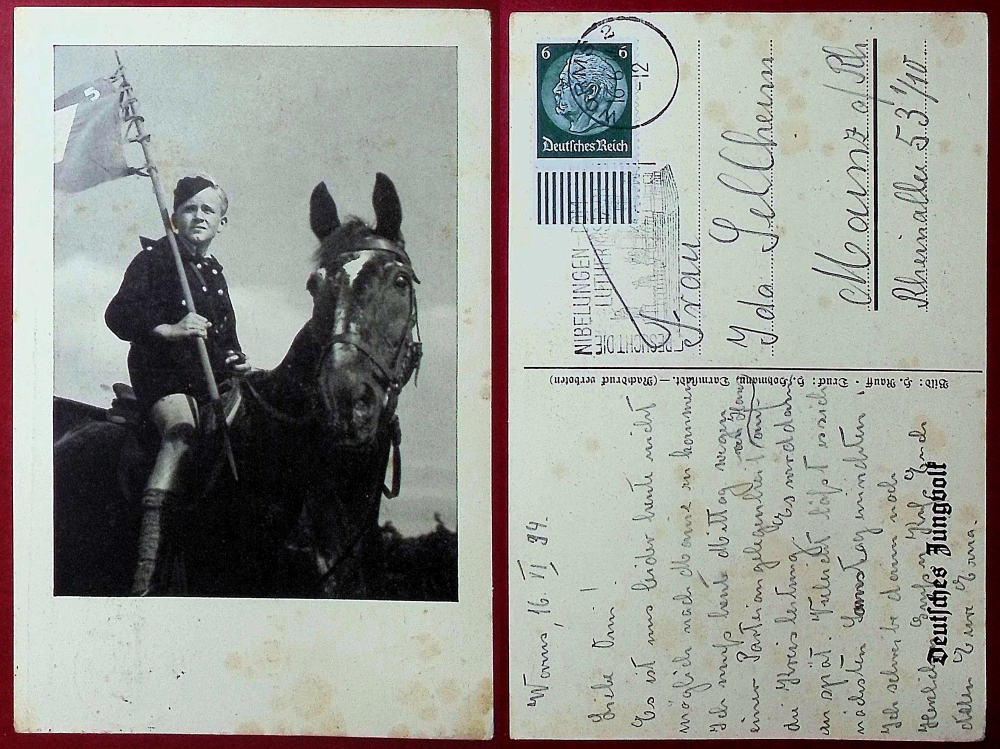 5
6 6
Deutsches Reich
WORMS 2
16.6
-12
NIBELUNGEN-
LUTHER
BESUCHT DIE
Frau
Ida Sellheim
Mainz a/Rh
Rheinallee 53 1/10
Bild: H. Rauff · Druck: H. Hohmann, Darmstadt. — (Nachdruck verboten)
Deutsches Jungvolk
Worms, 16. VI 34.
Liebe Omi!
Es ist uns leider heute nicht
möglich nach Mainz zu kommen
Ich muß heute Mittag wegen
einer Parteiangelegenheit auf
die Kreisleitung. Es wird dann
zu spät. Vieleicht läßt es sich
nächsten Samstag einrichten,
Ich schreibe dann noch
Herzliche Grüße
allen Eure Erna.